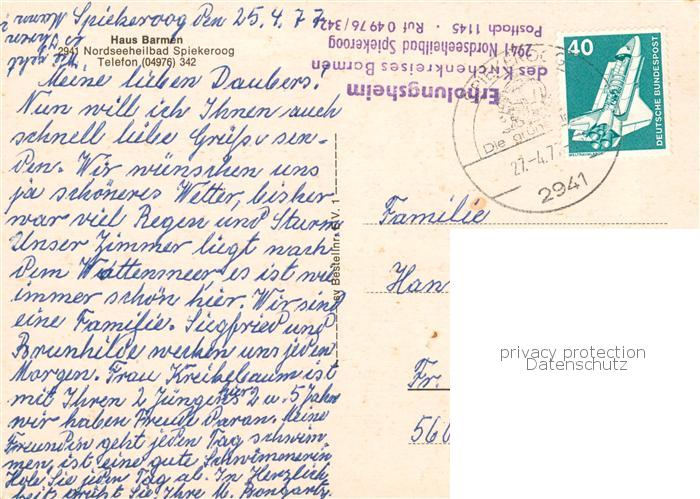 Spiekeroog den 25.4.77
Haus Barmen
2941 Nordseeheilbad Spiekeroog
Telefon (04976) 342
Meine lieben Daubers!
Nun will ich Ihnen auch
schnell liebe Grüße sen-
den. Wir wünschen uns
ja schöneres Wetter, bisher
war viel Regen und Sturm
Unser Zimmer liegt nach
dem Wattenmeer es ist wie
immer schön hier. Wir sind
eine Familie. Siegfried und
Brunhilde wecken uns jeden
Morgen. Frau Kreikebaum ist
mit Ihren 2 Jungens hier 2 u. 5 Jahre
wir haben Freude daran. Meine
Freundin geht jeden Tag schwim-
men, ist eine gute Schwimmerin
Hole Sie jeden Tag ab. In Herzlich-
keit grüßt Sie Ihre M. Bongartz
Erholungsheim
des Kirchenkreises Barmen
2941 Nordseeheilbad Spiekeroog
Postfach 1145 · Ruf 04976/342
27.-4.77
2941
40
DEUTSCHE BUNDESPOST
Bestellnr.
Familie
Han
Fr.
560
privacy protection
Datenschutz